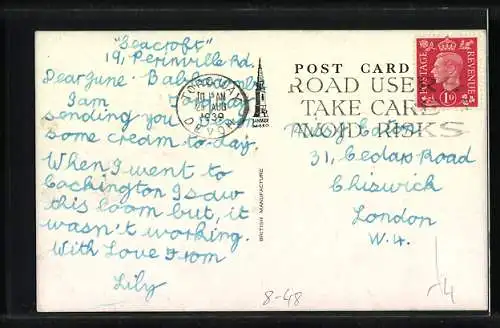 "Seacroft"
19, Perinville Rd.
Babbacombe
Dear June.
I am
sending you
some cream to-day.
When I went to
Cockington I saw
this loom but, it
wasn't working.
With Love from
Lily
TORQUAY
10 AM
AUG
1939
POST CARD
ROAD USERS
TAKE CARE
AVOID RISKS
POSTAGE
REVENUE
1D
31, Cedars Road
Chiswick
London
W.4.
BRITISH MANUFACTURE
8-48
4